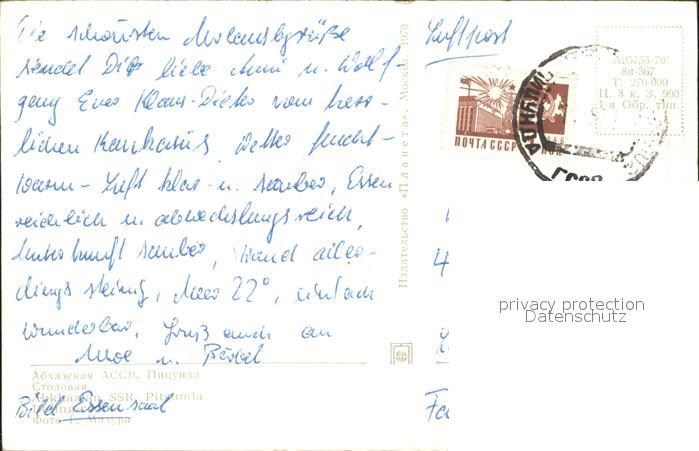 Die schönsten Urlaubsgrüße
sendet Dir liebe Omi u. Wolf-
gang Euer Klaus-Dieter vom herr-
lichen Kaukasus, Wetter feucht-
warm - Luft klar u. sauber, Essen
reichlich u. abwechslungsreich,
Unterkunft sauber, Strand aller-
dings steinig, Meer 22°, einfach
wunderbar, Gruß auch an
u. Bärbel
Абхазская АССР. Пицунда
Столовая
Abkhazian SSR. Pitsunda
Фото Г. Мазура
Bild Essensaal
Издательство «Планета». Москва. 1970
Luftpost
ПОЧТА СССР
А05755-70
8и-367
Т. 270 000
Ц. 8 к. З. 990
1-я Обр. тип.
4
Fa
privacy protection
Datenschutz